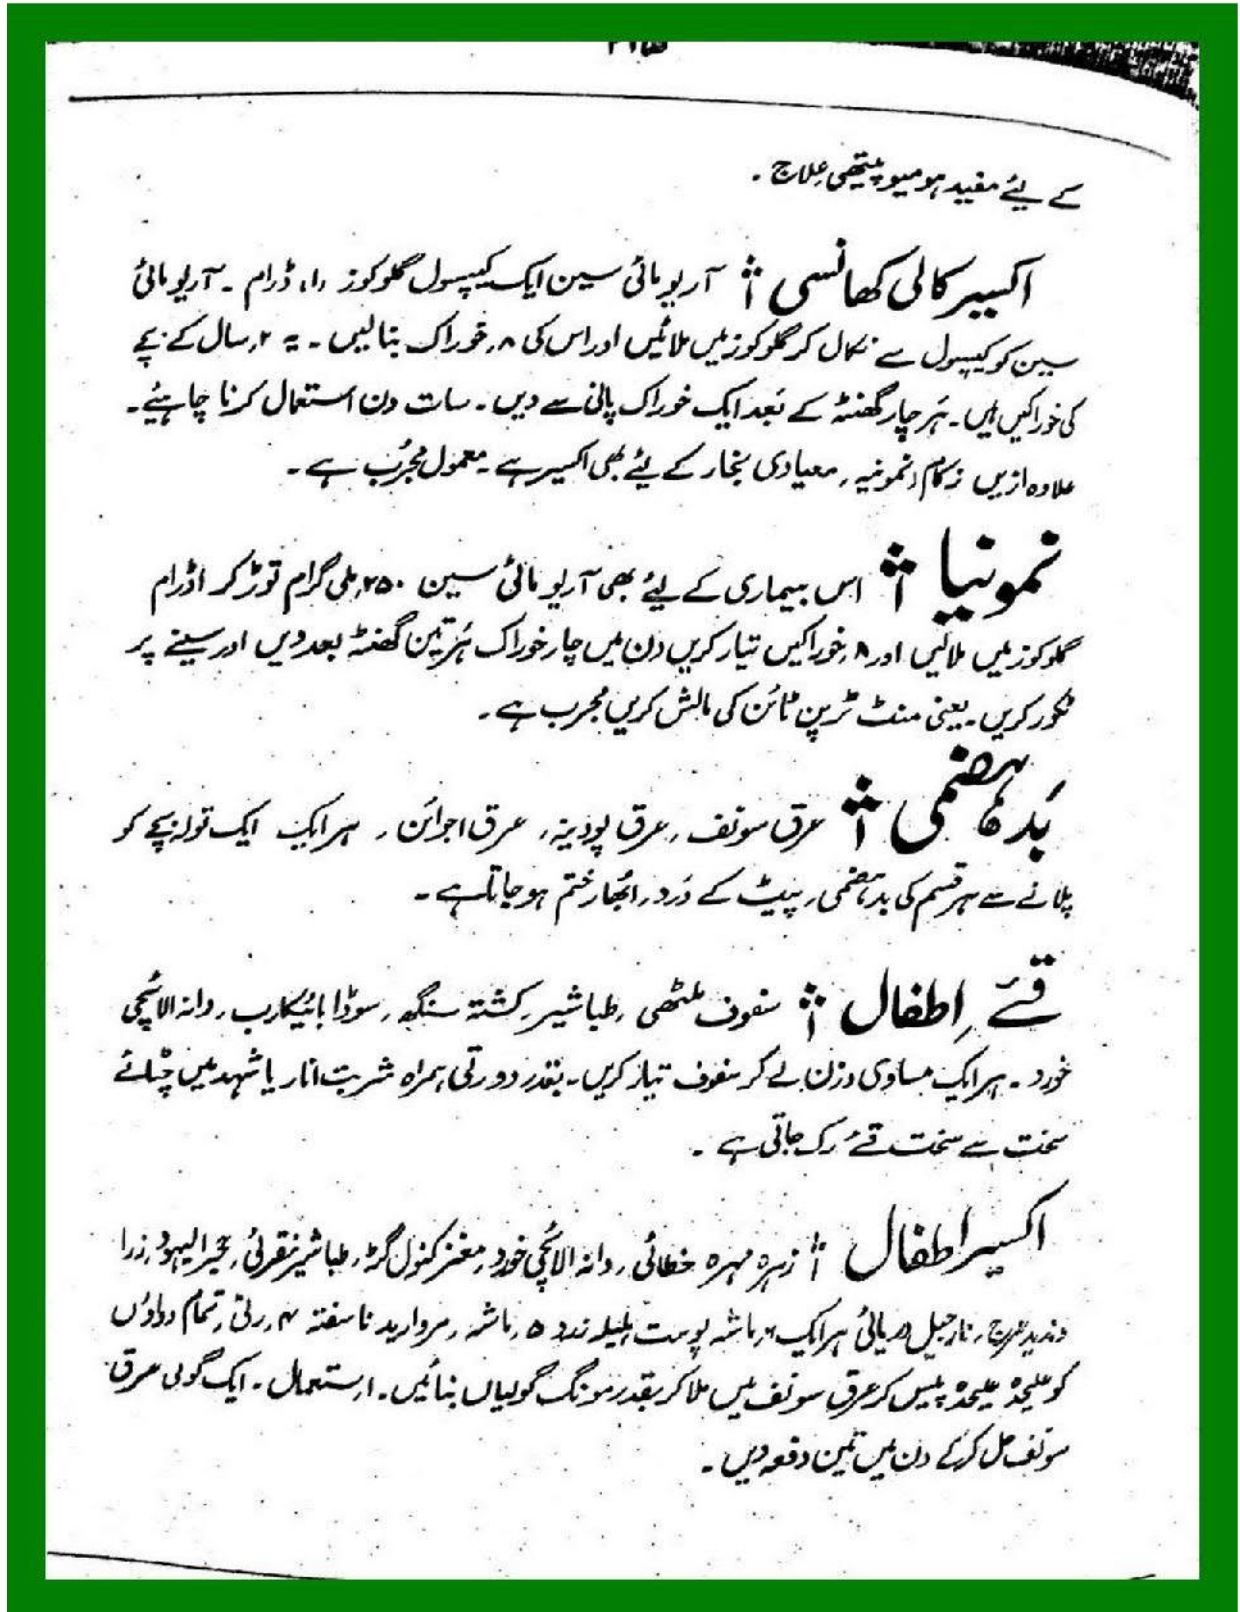 کے لیئے مفید ہومیوپیتھی علاج ۔
اکسیر کالی کھانسی آریو مائی سین ایک کیپسول گلوکوز ۱، ڈرام ۔ آریو مائی
سین کو کیپسول سے نکال کر گلوکوز میں ملائیں اور اس کی ۸، خوراک بنالیں ۔ یہ ۲، سال کے بچے
کی خوراکیں ہیں ۔ ہر چار گھنٹہ کے بعد ایک خوراک پانی سے دیں ۔ سات دن استعمال کرنا چاہیئے ۔
علاوہ ازیں زکام، نمونیہ، معیادی بخار کے لیئے بھی اکسیر ہے ۔ معمول مجرب ہے ۔
نمونیا اس بیماری کے لیئے بھی آریو مائی سین ۲۵۰، ملی گرام توڑ کر ا ڈرام
گلوکوز میں ملائیں اور ۸، خوراکیں تیار کریں دن میں چار خوراک ہر تین گھنٹہ بعد دیں اور سینے پر
ٹکور کریں ۔ یعنی منٹ ٹرپن ٹائن کی مالش کریں مجرب ہے ۔
بدہضمی عرق سونف، عرق پودینہ، عرق اجوائن، ہر ایک ایک تولہ بچے کو
پلانے سے ہر قسم کی بدہضمی، پیٹ کے درد، اپھار ختم ہو جاتا ہے ۔
قئے اطفال سفوف ملٹھی، طباشیر، کشتہ سنگھ، سوڈا بائیکارب، دانہ الائچی
خورد ۔ ہر ایک مساوی وزن لے کر سفوف تیار کریں ۔ بقدر دو رتی ہمراہ شربت انار یا شہد میں چٹائے
سخت سے سخت قئے رک جاتی ہے ۔
اکسیر اطفال زہرہ مہرہ خطائی، دانہ الائچی خورد، مغز کنول گٹہ، طباشیر نقرئی، حجر الیہود، زرا
وند مدحرج، نارجیل دریائی ہر ایک ۶، ماشہ پوست ہلیلہ زرد ۵، ماشہ، مروارید ناسفتہ ۴، رتی، تمام دواؤں
کو علیحدہ علیحدہ پیس کر عرق سونف میں ملا کر بقدر مونگ گولیاں بنائیں ۔ استعمال ۔ ایک گولی عرق
سونف حل کرکے دن میں تین دفعہ دیں ۔